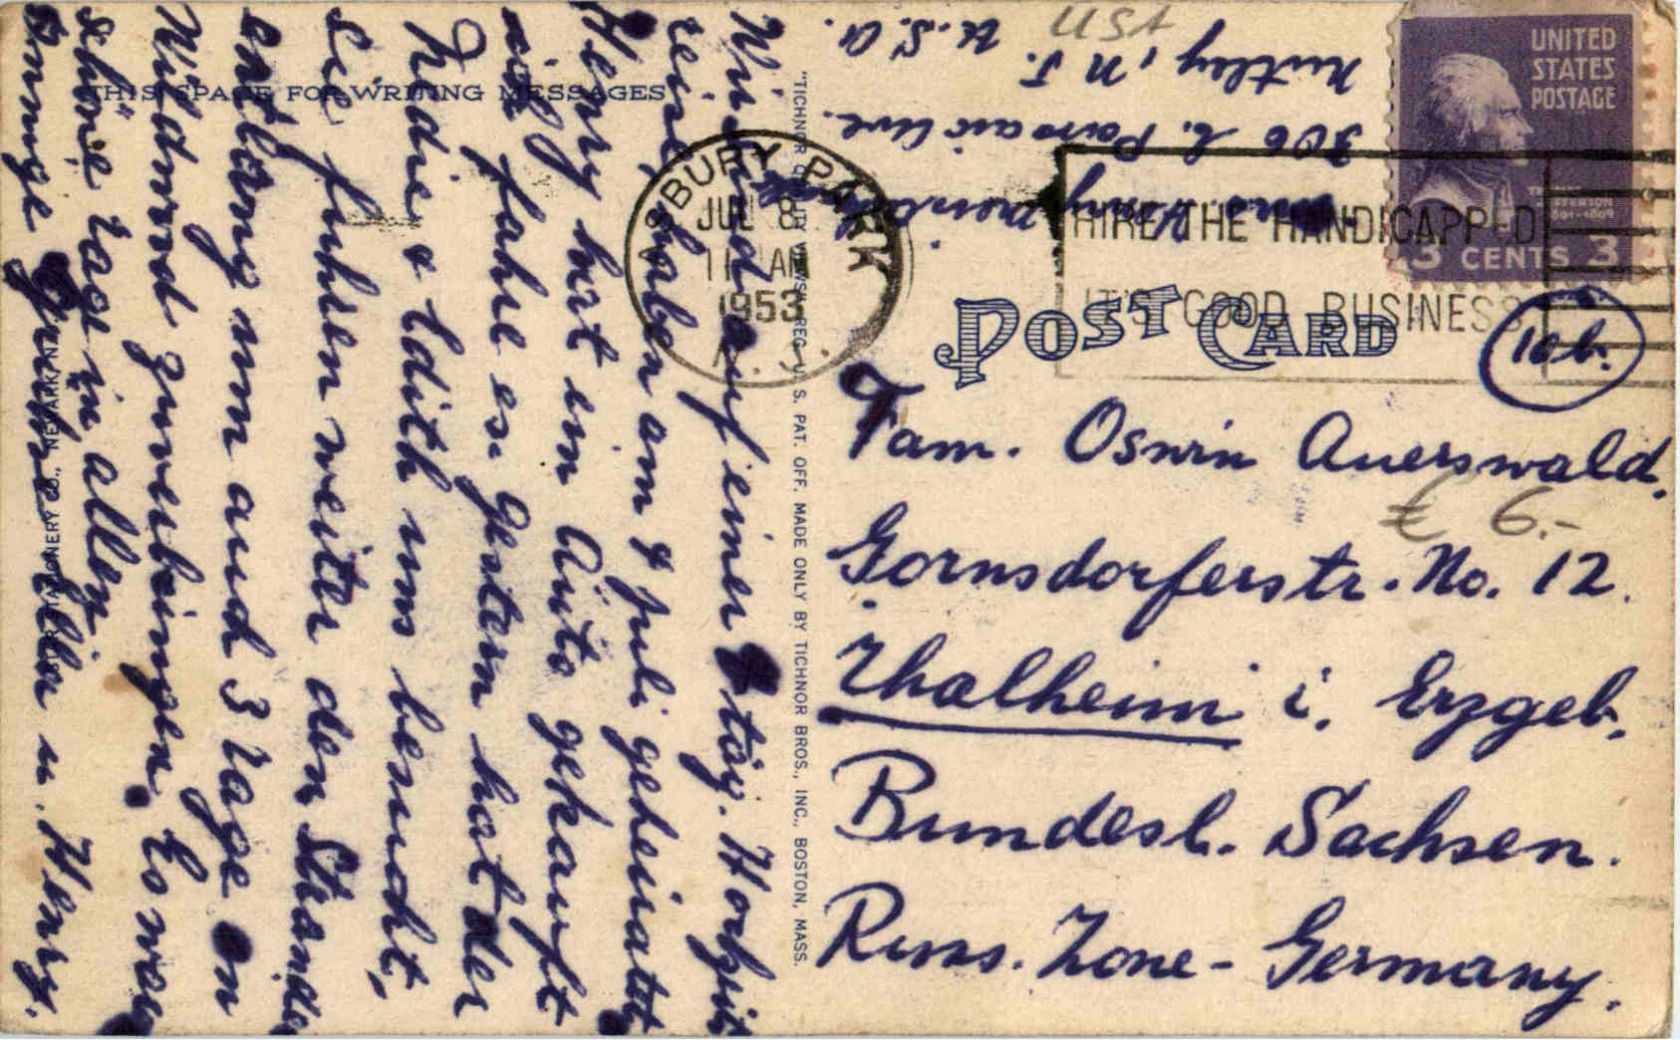 THIS SPACE FOR WRITING MESSAGES
Wir sind auf einer täg. Hochzeits
reise, haben am 4 Juli geheiratet
Henry hat ein Auto gekauft
ich fahre es. gestern hat der
Freddie & Edith uns besucht,
sie fuhren weiter den Strande
entlang um auch 3 Tage in
Wildwood zuverbringen. Es war
schöne Tage in allen
Innige Grüsse Elsa u. Henry.
STATIONERY CO., NEWARK, N.J.
"TICHNOR QUALITY VIEWS," REG. U. S. PAT. OFF. MADE ONLY BY TICHNOR BROS., INC., BOSTON, MASS.
Mrs. Henry
306 E. Passaic Ave.
Nutley, N J.
U. S. A.
USA
UNITED
STATES
POSTAGE
3 CENTS 3
ASBURY PARK
JUL 8
11 AM
1953
N. J.
HIRE THE HANDICAPPED
IT'S GOOD BUSINESS
POST CARD
10b.
Fam. Oswin Auerswald.
€ 6.-
Gornsdorferstr. No. 12.
Thalheim i. Erzgeb.
Bundesl. Sachsen.
Russ. Zone - Germany.